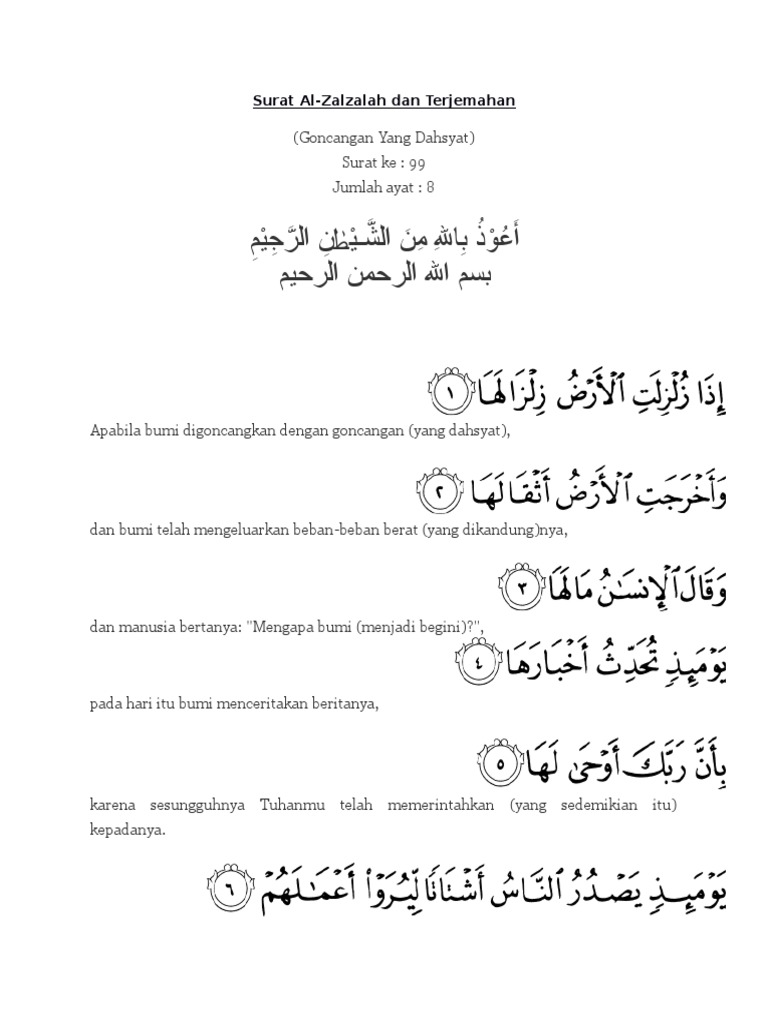 Surat Al-Zalzalah dan Terjemahan
(Goncangan Yang Dahsyat)
Surat ke : 99
Jumlah ayat : 8
أَعُوْذُ بِاللهِ مِنَ الشَّيْطٰنِ الرَّجِيْمِ
بسم الله الرحمن الرحيم
إِذَا زُلْزِلَتِ ٱلْأَرْضُ زِلْزَالَهَا ١
Apabila bumi digoncangkan dengan goncangan (yang dahsyat),
وَأَخْرَجَتِ ٱلْأَرْضُ أَثْقَالَهَا ٢
dan bumi telah mengeluarkan beban-beban berat (yang dikandung)nya,
وَقَالَ ٱلْإِنسَـٰنُ مَا لَهَا ٣
dan manusia bertanya: "Mengapa bumi (menjadi begini)?",
يَوْمَئِذٍ تُحَدِّثُ أَخْبَارَهَا ٤
pada hari itu bumi menceritakan beritanya,
بِأَنَّ رَبَّكَ أَوْحَىٰ لَهَا ٥
karena sesungguhnya Tuhanmu telah memerintahkan (yang sedemikian itu)
kepadanya.
يَوْمَئِذٍ يَصْدُرُ ٱلنَّاسُ أَشْتَاتًا لِّيُرَوْا۟ أَعْمَـٰلَهُمْ ٦